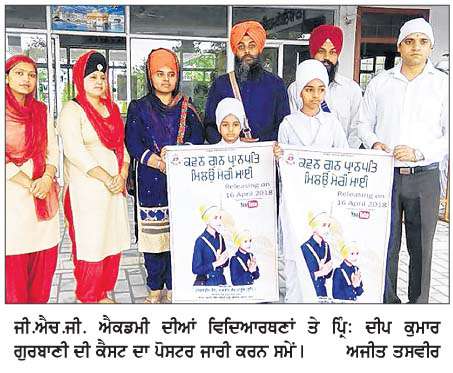 ਕਵਨ ਗੁਨ ਪ੍ਰਾਨਪਤਿ
ਮਿਲਉ ਮੇਰੀ ਮਾਈ
Releasing on
16 April 2018
YouTube
ਕਵਨ ਗੁਨ ਪ੍ਰਾਨਪਤਿ
ਮਿਲਉ ਮੇਰੀ ਮਾਈ
Releasing on
16 April 2018
YouTube
ਜੀ.ਐਚ.ਜੀ. ਐਕਡਮੀ ਦੀਆਂ ਵਿਦਿਆਰਥਣਾਂ ਤੇ ਪ੍ਰਿੰ: ਦੀਪ ਕੁਮਾਰ
ਗੁਰਬਾਣੀ ਦੀ ਕੈਸਟ ਦਾ ਪੋਸਟਰ ਜਾਰੀ ਕਰਨ ਸਮੇਂ। ਅਜੀਤ ਤਸਵੀਰ